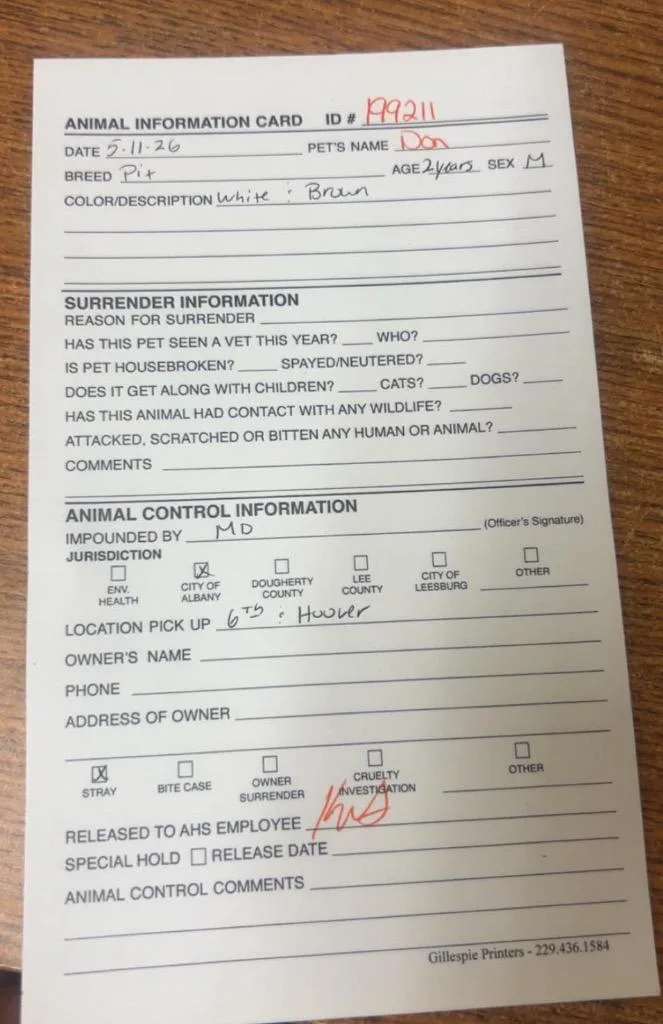 ANIMAL INFORMATION CARD ID # 199211
DATE 5-11-26 PET'S NAME Don
BREED Pit AGE 2 years SEX M
COLOR/DESCRIPTION White : Brown
SURRENDER INFORMATION
REASON FOR SURRENDER
HAS THIS PET SEEN A VET THIS YEAR? WHO?
IS PET HOUSEBROKEN? SPAYED/NEUTERED?
DOES IT GET ALONG WITH CHILDREN? CATS? DOGS?
HAS THIS ANIMAL HAD CONTACT WITH ANY WILDLIFE?
ATTACKED, SCRATCHED OR BITTEN ANY HUMAN OR ANIMAL?
COMMENTS
ANIMAL CONTROL INFORMATION
IMPOUNDED BY MD (Officer's Signature)
JURISDICTION
ENV. HEALTH CITY OF ALBANY DOUGHERTY COUNTY LEE COUNTY CITY OF LEESBURG OTHER
LOCATION PICK UP 6th : Hoover
OWNER'S NAME
PHONE
ADDRESS OF OWNER
STRAY BITE CASE OWNER SURRENDER CRUELTY INVESTIGATION OTHER
RELEASED TO AHS EMPLOYEE
SPECIAL HOLD RELEASE DATE
ANIMAL CONTROL COMMENTS
Gillespie Printers - 229.436.1584